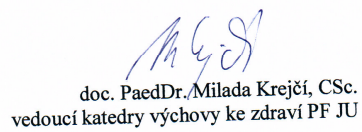 doc. PaedDr. Milada Krejčí, CSc.
vedoucí katedry výchovy ke zdraví PF JU